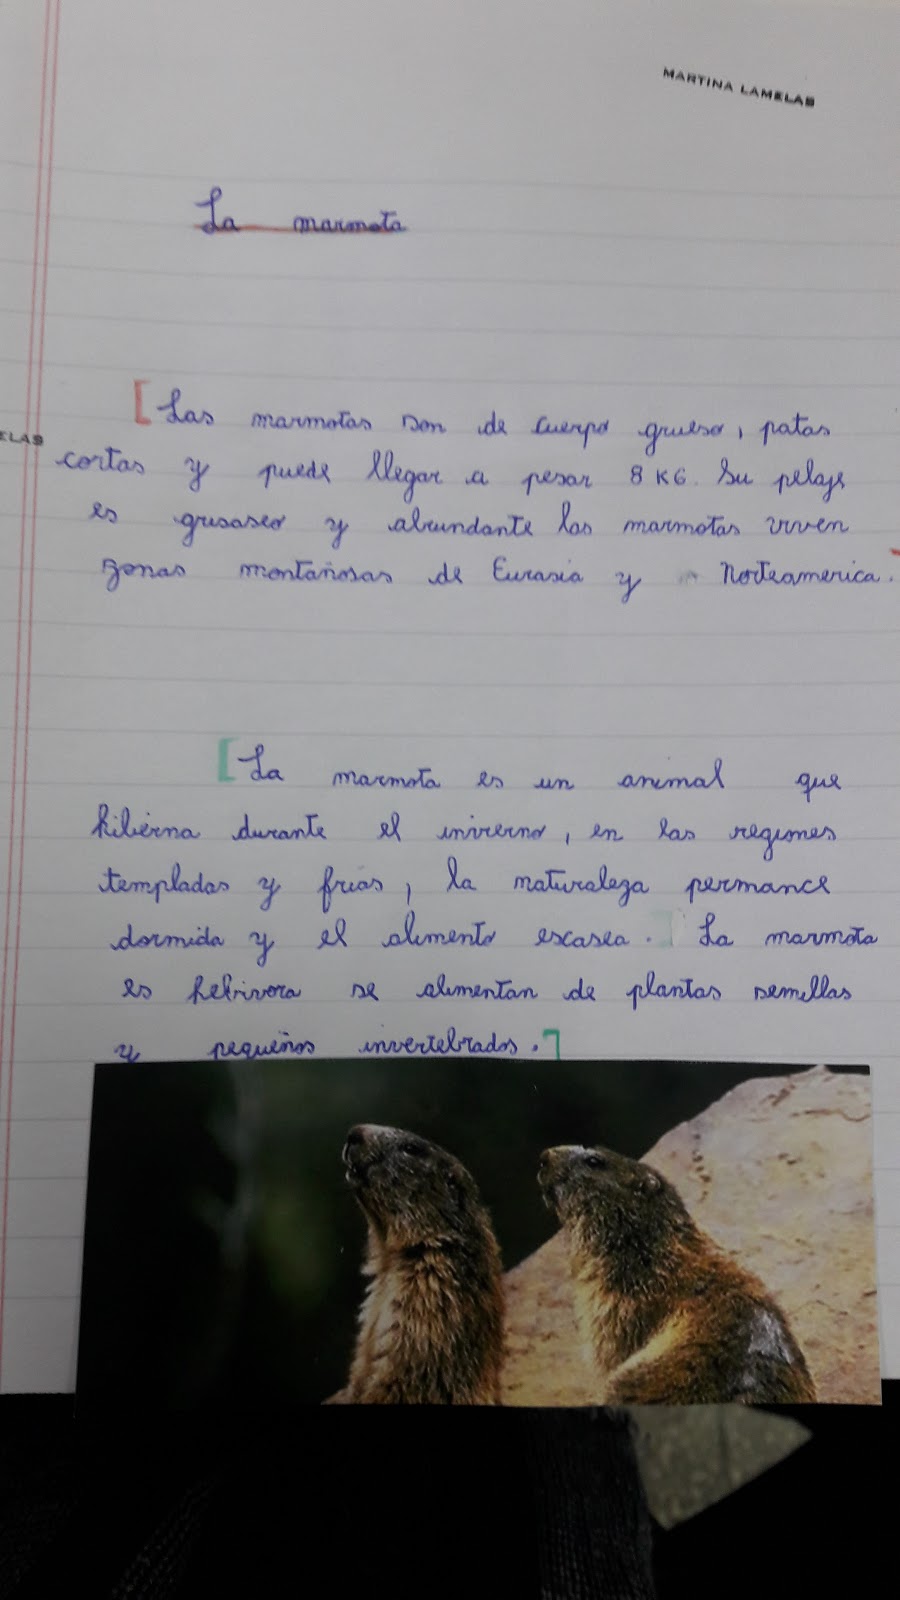 MARTINA LAMELAS
La marmota
[Las marmotas son de cuerpo grueso, patas
ELAS
cortas y puede llegar a pesar 8 KG. Su pelaje
es grisaseo y abundante las marmotas viven
zonas montañosas de Eurasia y Norteamerica.
[La marmota es un animal que
hibierna durante el invierno, en las regiones
templadas y frias, la naturaleza permance
dormida y el alimento escasea. La marmota
es hebrivora se alimentan de plantas semillas
y pequeños invertebrados.]